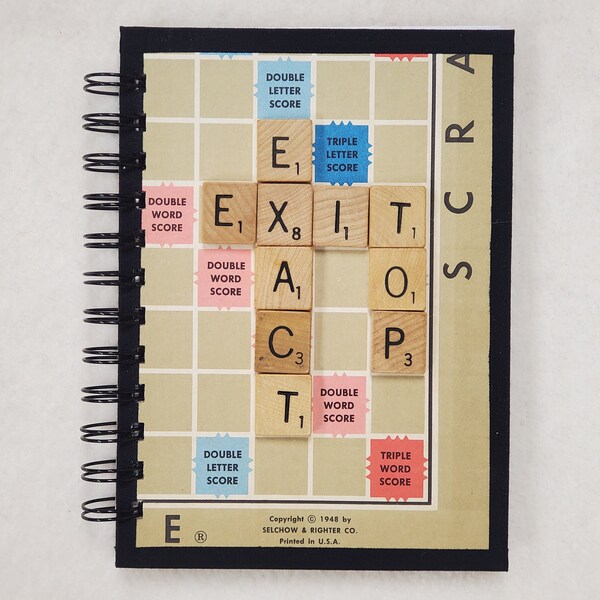 DOUBLE
LETTER
SCORE
E1
TRIPLE
LETTER
SCORE
DOUBLE
WORD
SCORE
E1 X8 I1 T1
DOUBLE
WORD
SCORE
A1 O1
C3 P3
T1
DOUBLE
WORD
SCORE
DOUBLE
LETTER
SCORE
TRIPLE
WORD
SCORE
SCRA
E ®
Copyright © 1948 by
SELCHOW & RIGHTER CO.
Printed in U.S.A.